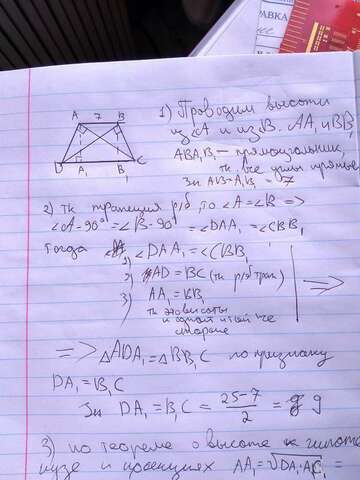 РАВКА
A 7 B
D A₁ B₁ C
1) Проводим высоты
из ∠A и из B. AA₁ и BB₁
ABA₁B₁ – прямоугольник,
тк все углы прямые
Зн AB=A₁B₁ = 7
2) тк трапеция р/б, то ∠A = ∠B =>
∠A-90° = ∠B-90° ∠DAA₁ = ∠CBB₁
Тогда ∠DAA₁ = ∠CBB₁
2) AD = BC (тк р/б трап.)
3) AA₁ = BB₁
тк это высоты
и одной и той же
стороне
=>
=> △ADA₁ = △BB₁C по признаку
DA₁ = B₁C
Зн DA₁ = B₁C = 25-7/2 = 9
3) по теореме о высоте к гипоте
нузе и проекциях AA₁ = √DA₁·A₁C =